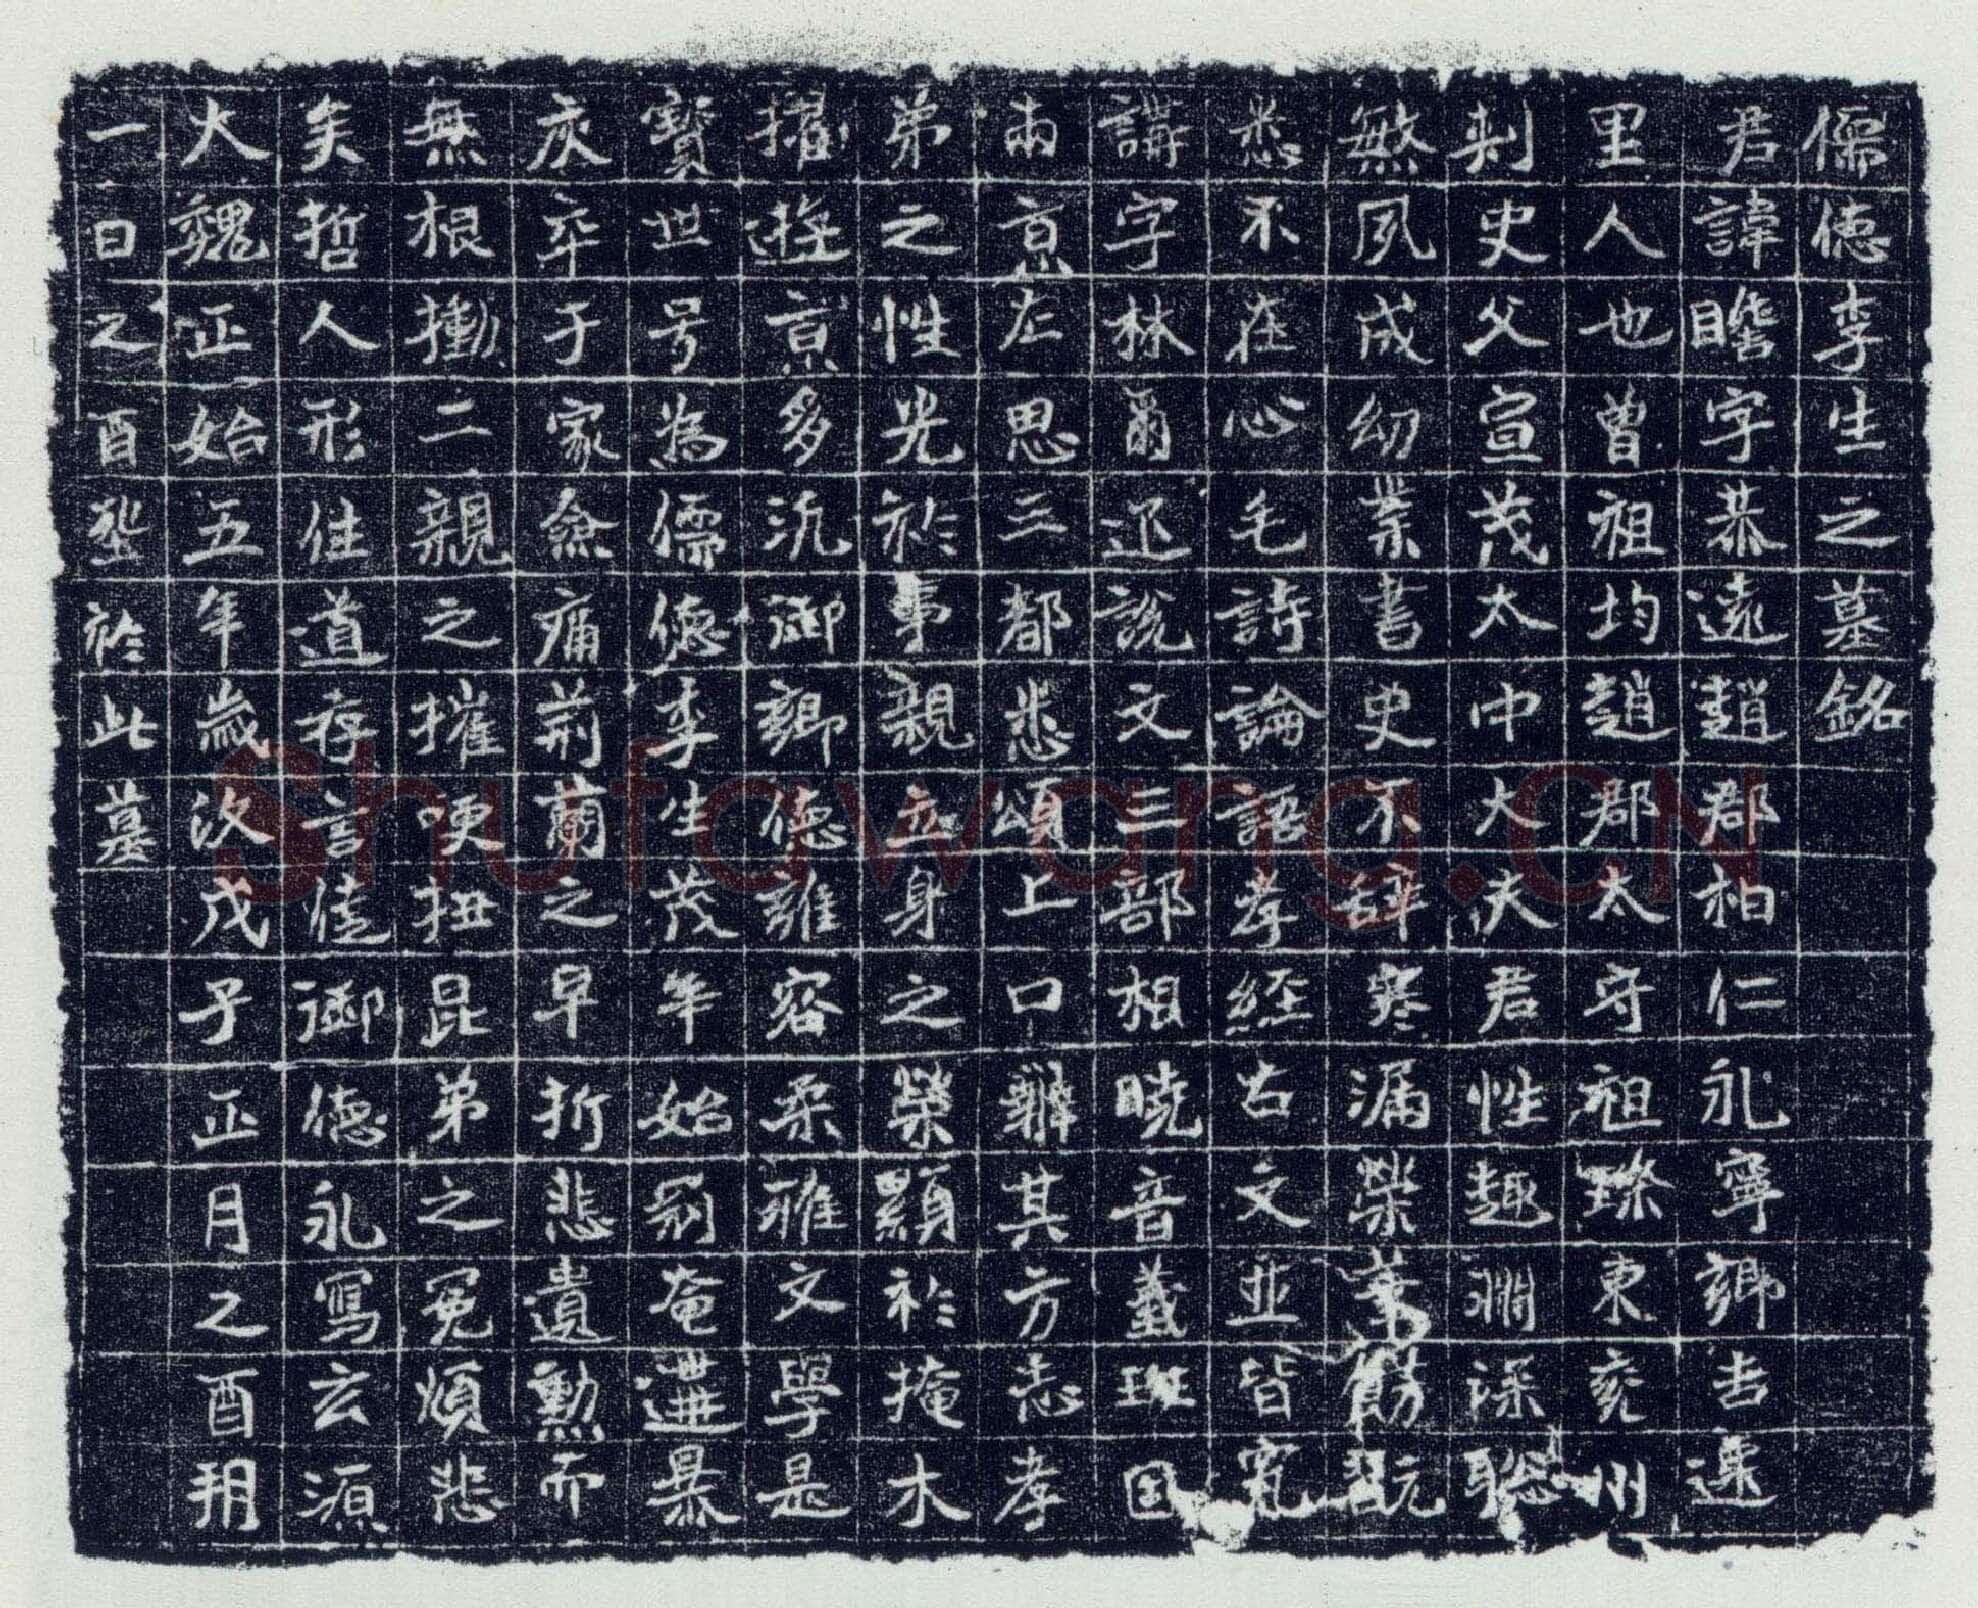 儒德李生之墓銘
君諱瞻字恭遠趙郡柏仁永寧鄉吉遷
里人也曾祖均趙郡太守祖璨東兗州
刺史父宣茂太中大夫君性趣淵深聡
慜夙成幼業書史不辞寒漏榮飭翫
悉不在心毛詩論語孝經古文並皆究
講字林爾迊說文三部相曉音義班固
兩京左思三都悉頌上口辭其方志孝
弟之性光於事親立身之榮顯於掩木
擢遊京多汎御鄉德雍容柔雅文學是
寶世号為儒德李生茂年始剋奄遘暴
灰卒于家僉痛荊蘭之早折悲遺勲而
無根慟二親之摧哽扭昆弟之冤煩悲
矣哲人形往道存言憶御德永寫云源
大魏正始五年歲次戊子正月之酉朔
一日之酉塟於此墓
Shufawang.CN